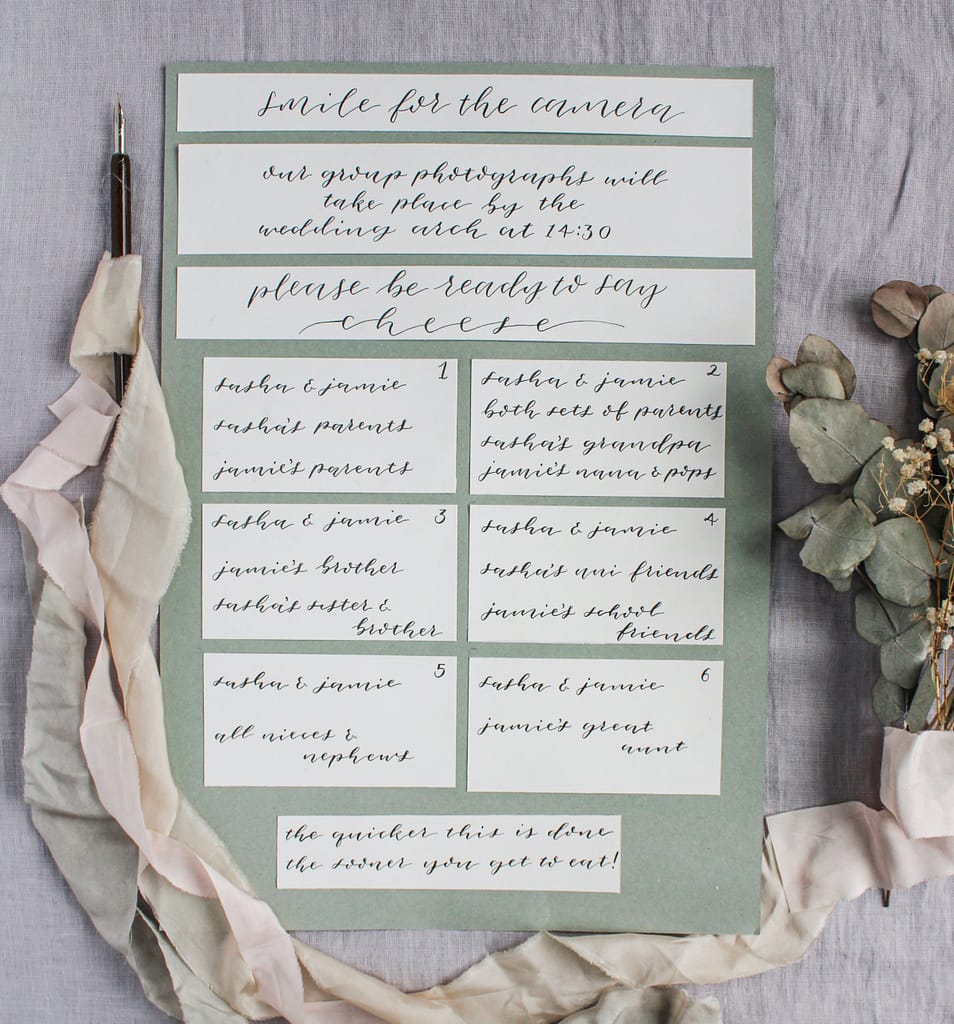 smile for the camera
our group photographs will
take place by the
wedding arch at 14:30
please be ready to say
cheese
1
sasha & jamie
sasha's parents
jamie's parents
2
sasha & jamie
both sets of parents
sasha's grandpa
jamie's nana & pops
3
sasha & jamie
jamie's brother
sasha's sister &
brother
4
sasha & jamie
sasha's uni friends
jamie's school
friends
5
sasha & jamie
all nieces &
nephews
6
sasha & jamie
jamie's great
aunt
the quicker this is done
the sooner you get to eat!